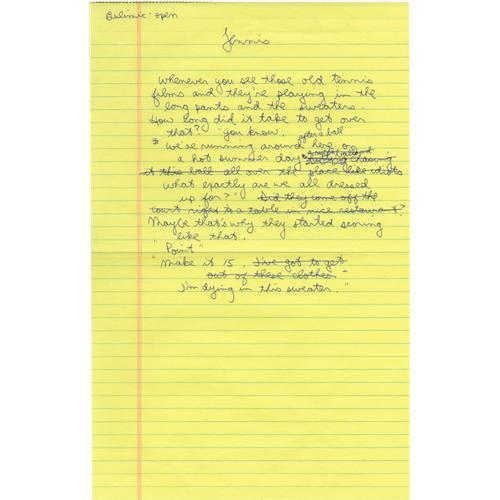 open
Tennis
Whenever you see those old tennis
films and they're playing in the
long pants and the sweaters.
How long did it take to get over
that? "you know,
after a ball
we're running around here on
a hot summer day chasing
it this ball all over the place like idiots
what exactly are we all dressed
up for?" Did they come off the
court right to a table in nice restaurant?
Maybe that's why they started scoring
like that.
"Point"
"Make it 15, I've got to get
out of these clothes"
I'm dying in this sweater."